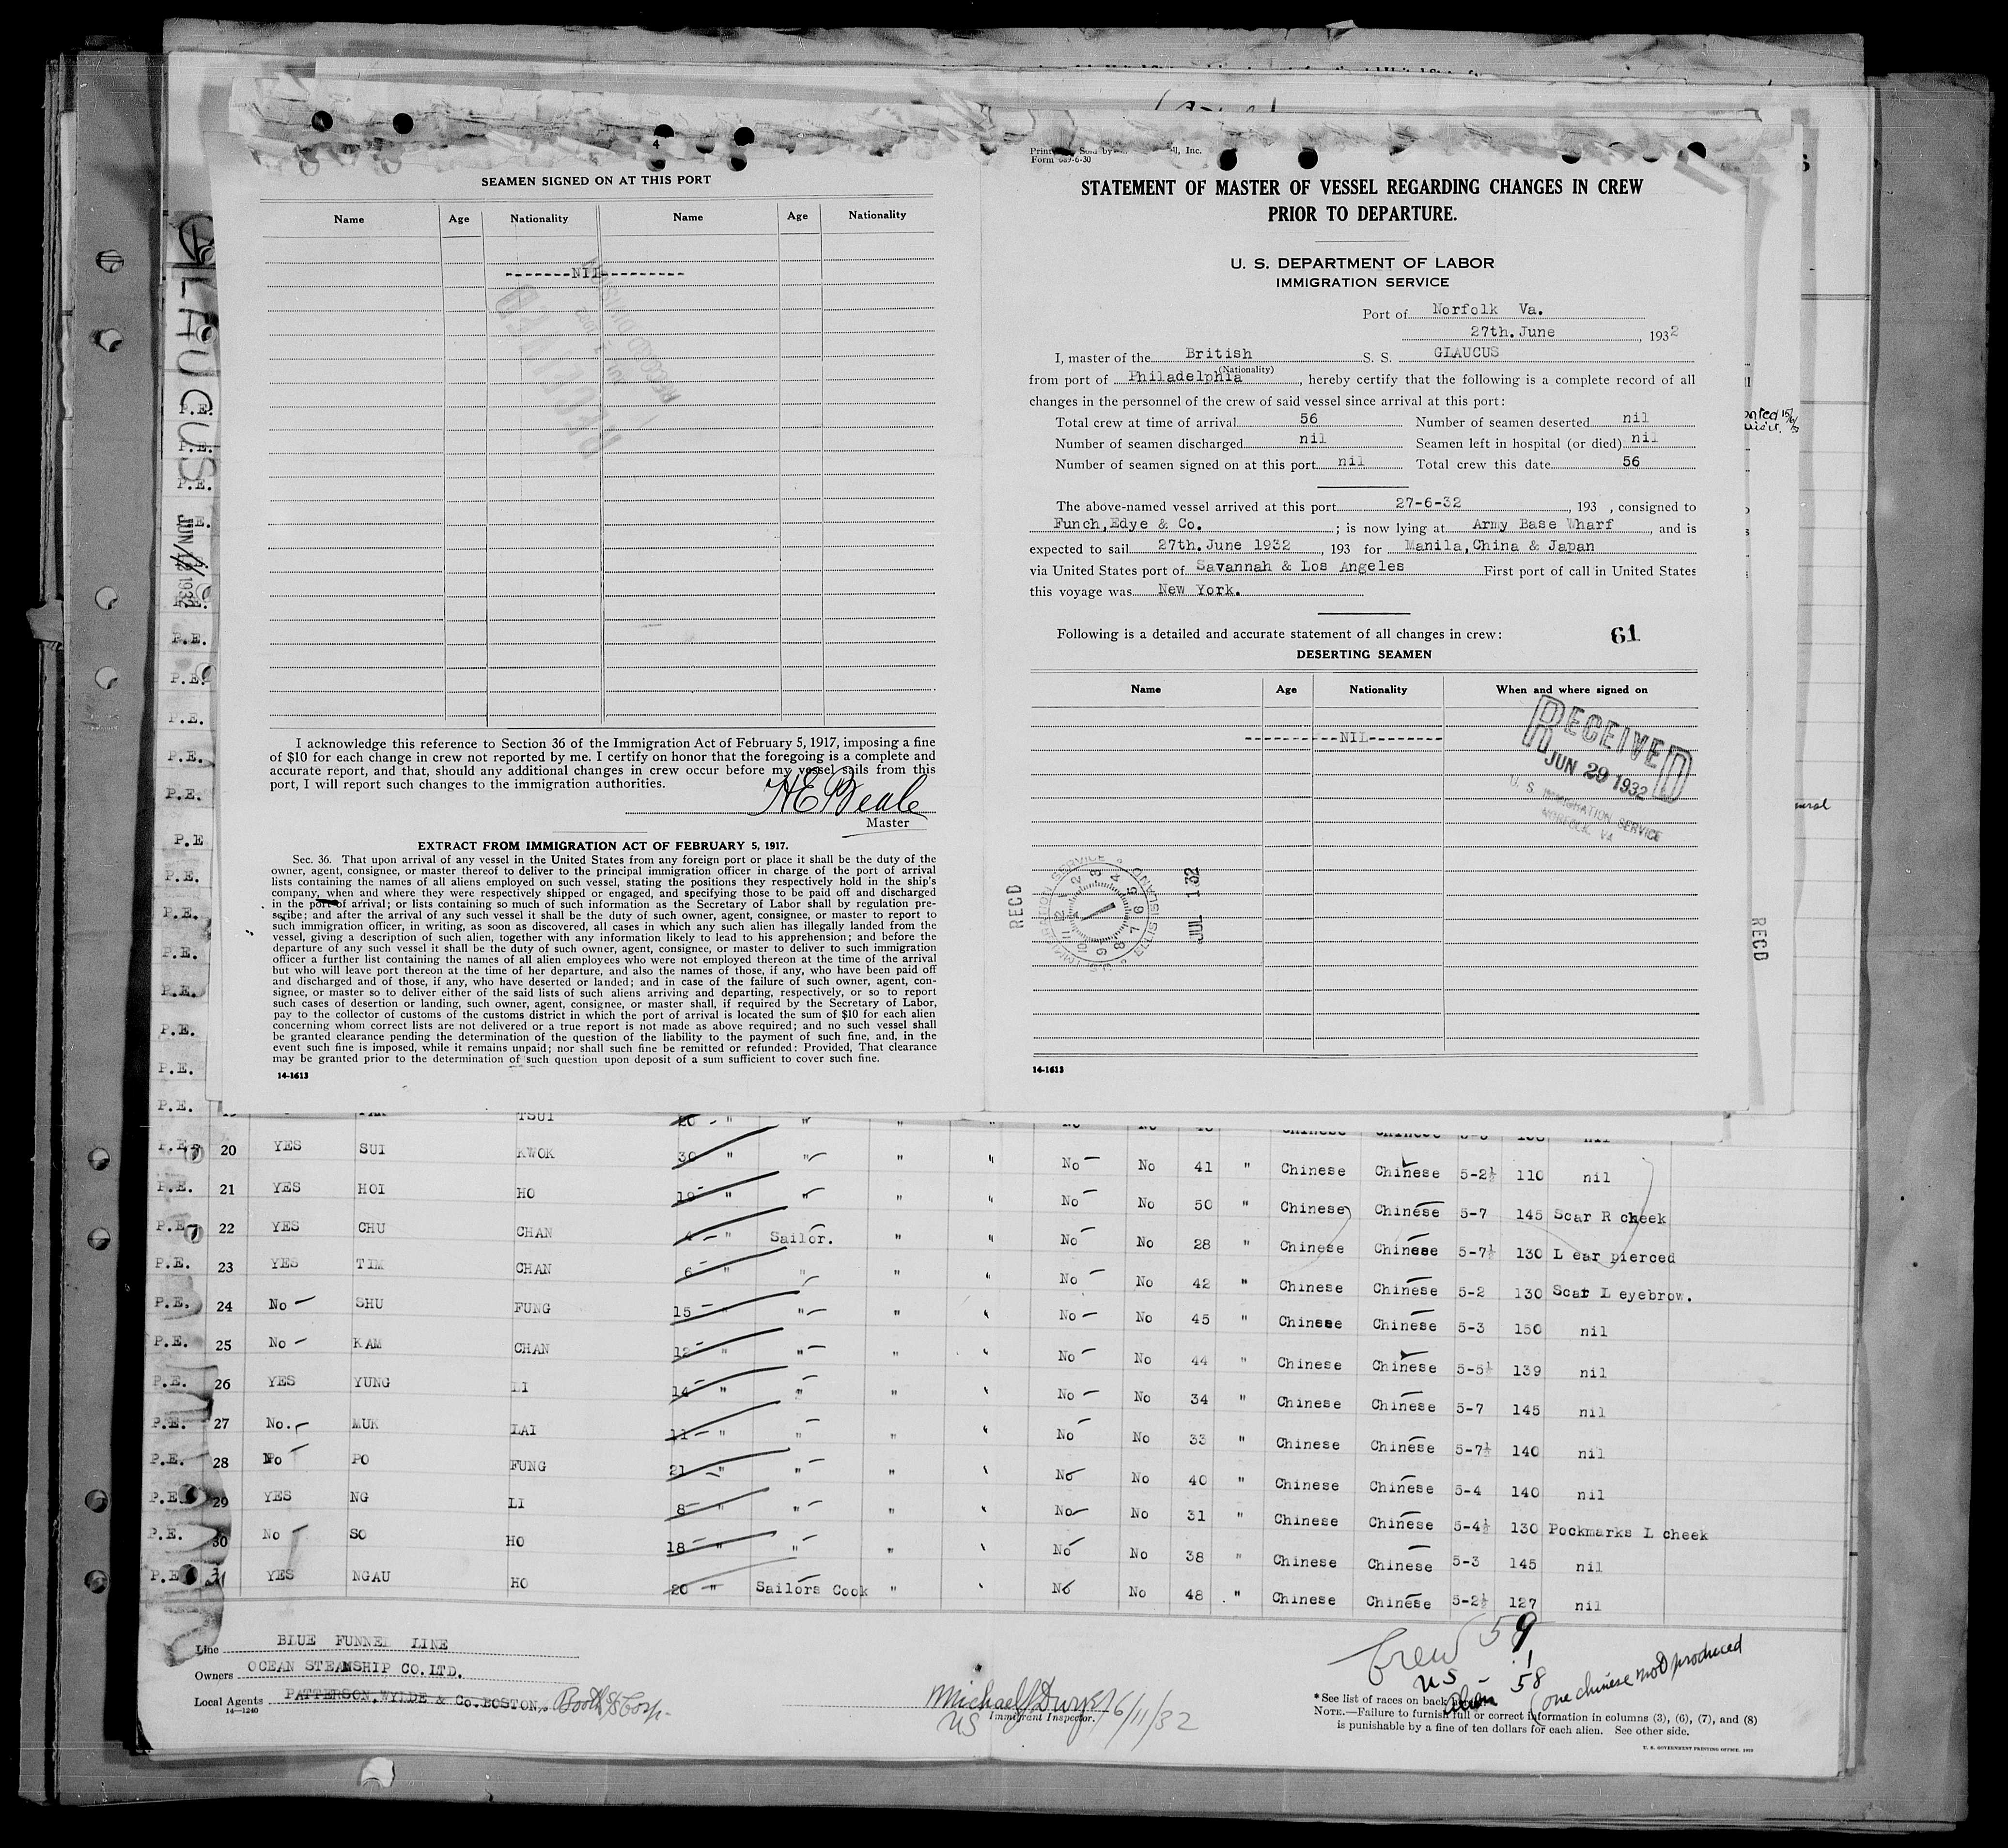 4
SEAMEN SIGNED ON AT THIS PORT
Name Age Nationality Name Age Nationality
-------NIL---------
I acknowledge this reference to Section 36 of the Immigration Act of February 5, 1917, imposing a fine
of $10 for each change in crew not reported by me. I certify on honor that the foregoing is a complete and
accurate report, and that, should any additional changes in crew occur before my vessel sails from this
port, I will report such changes to the immigration authorities.
H E Beale
Master
EXTRACT FROM IMMIGRATION ACT OF FEBRUARY 5, 1917.
Sec. 36. That upon arrival of any vessel in the United States from any foreign port or place it shall be the duty of the
owner, agent, consignee, or master thereof to deliver to the principal immigration officer in charge of the port of arrival
lists containing the names of all aliens employed on such vessel, stating the positions they respectively hold in the ship's
company, when and where they were respectively shipped or engaged, and specifying those to be paid off and discharged
in the port of arrival; or lists containing so much of such information as the Secretary of Labor shall by regulation pre-
scribe; and after the arrival of any such vessel it shall be the duty of such owner, agent, consignee, or master to report to
such immigration officer, in writing, as soon as discovered, all cases in which any such alien has illegally landed from the
vessel, giving a description of such alien, together with any information likely to lead to his apprehension; and before the
departure of any such vessel it shall be the duty of such owner, agent, consignee, or master to deliver to such immigration
officer a further list containing the names of all alien employees who were not employed thereon at the time of the arrival
but who will leave port thereon at the time of her departure, and also the names of those, if any, who have been paid off
and discharged and of those, if any, who have deserted or landed; and in case of the failure of such owner, agent, con-
signee, or master so to deliver either of the said lists of such aliens arriving and departing, respectively, or so to report
such cases of desertion or landing, such owner, agent, consignee, or master shall, if required by the Secretary of Labor,
pay to the collector of customs of the customs district in which the port of arrival is located the sum of $10 for each alien
concerning whom correct lists are not delivered or a true report is not made as above required; and no such vessel shall
be granted clearance pending the determination of the question of the liability to the payment of such fine, and, in the
event such fine is imposed, while it remains unpaid; nor shall such fine be remitted or refunded: Provided, That clearance
may be granted prior to the determination of such question upon deposit of a sum sufficient to cover such fine.
14-1613
Form 689-6-30
STATEMENT OF MASTER OF VESSEL REGARDING CHANGES IN CREW
PRIOR TO DEPARTURE.
U. S. DEPARTMENT OF LABOR
IMMIGRATION SERVICE
Port of Norfolk Va.
27th. June, 1932
I, master of the British S. S. GLAUCUS
(Nationality)
from port of Philadelphia, hereby certify that the following is a complete record of all
changes in the personnel of the crew of said vessel since arrival at this port:
Total crew at time of arrival 56 Number of seamen deserted nil
Number of seamen discharged nil Seamen left in hospital (or died) nil
Number of seamen signed on at this port nil Total crew this date 56
The above-named vessel arrived at this port 27-6-32, 193 , consigned to
Funch,Edye & Co. ; is now lying at Army Base Wharf, and is
expected to sail 27th. June 1932, 193 for Manila,China & Japan
via United States port of Savannah & Los Angeles First port of call in United States
this voyage was New York.
Following is a detailed and accurate statement of all changes in crew: 61
DESERTING SEAMEN
Name Age Nationality When and where signed on
----------NIL--------
RECEIVED
JUN 29 1932
U. S. IMMIGRATION SERVICE
NORFOLK, VA
RECD
JUL 1 32
RECD
14-1613
GLAUCUS
TSUI
P.E. 20 YES SUI KWOK 30 " " " " No No 41 " Chinese Chinese 5-2½ 110 nil
P.E. 21 YES HOI HO 19 " " " " No No 50 " Chinese Chinese 5-7 145 Scar R cheek
P.E. 22 YES CHU CHAN 4 " Sailor. " " No No 28 " Chinese Chinese 5-7½ 130 L ear pierced
P.E. 23 YES TIM CHAN 6 " " " " No No 42 " Chinese Chinese 5-2 130 Scar L eyebrow.
P.E. 24 No SHU FUNG 15 " " " " No No 45 " Chinese Chinese 5-3 150 nil
P.E. 25 No KAM CHAN 12 " " " " No No 44 " Chinese Chinese 5-5½ 139 nil
P.E. 26 YES YUNG LI 14 " " " " No No 34 " Chinese Chinese 5-7 145 nil
P.E. 27 No. MUK LAI 11 " " " " No No 33 " Chinese Chinese 5-7½ 140 nil
P.E. 28 No PO FUNG 21 " " " " No No 40 " Chinese Chinese 5-4 140 nil
P.E. 29 YES NG LI 8 " " " " No No 31 " Chinese Chinese 5-4½ 130 Pockmarks L cheek
P.E. 30 No SO HO 18 " " " " No No 38 " Chinese Chinese 5-3 145 nil
P.E. 31 YES NGAU HO 20 " Sailors Cook " " No No 48 " Chinese Chinese 5-2½ 127 nil
Line BLUE FUNNEL LINE
Owners OCEAN STEAMSHIP CO.LTD.
Local Agents PATTERSON,WYLDE & Co.BOSTON,
14—1240
Immigrant Inspector.
US 6/11/32
Crew 59
US - 1
Alien 58 (one chinese not produced
* See list of races on back
NOTE.—Failure to furnish full or correct information in columns (3), (6), (7), and (8)
is punishable by a fine of ten dollars for each alien. See other side.
U. S. GOVERNMENT PRINTING OFFICE